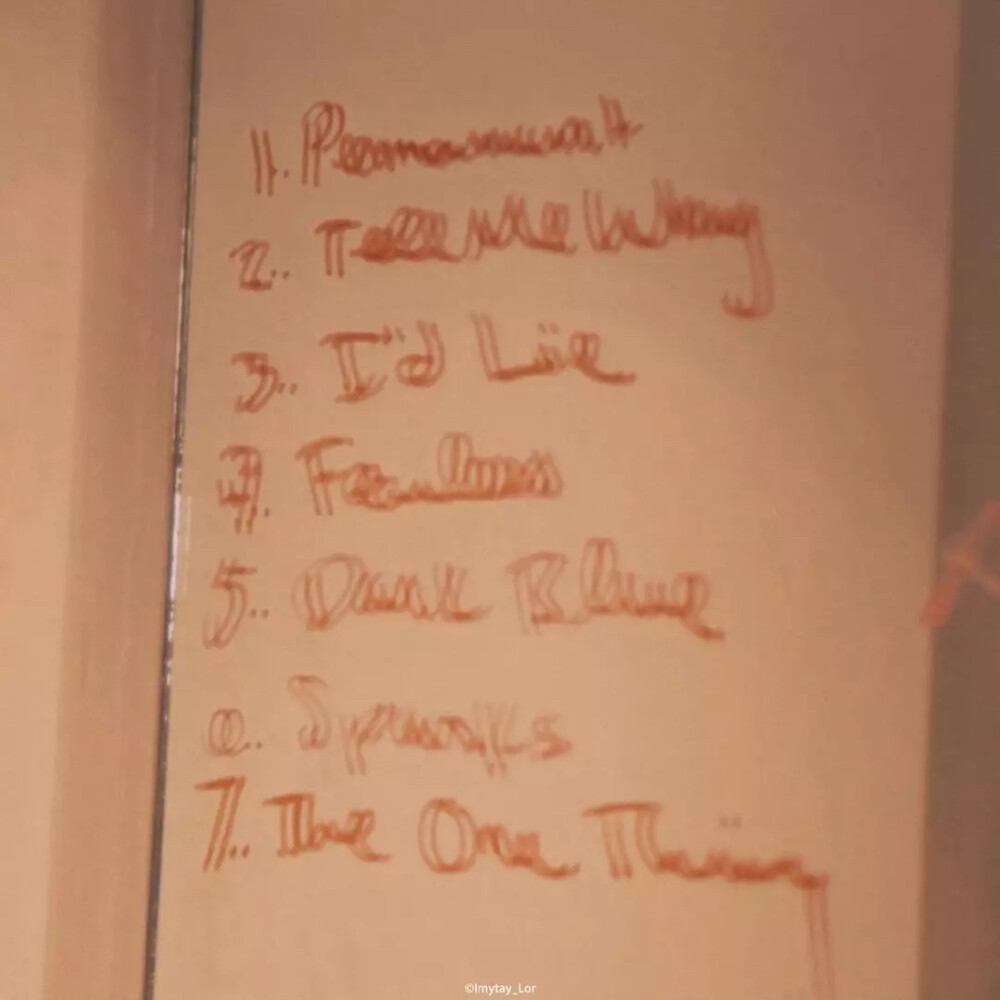 1. Permanent
2. Tell Me Why
3. I'd Lie
4. Fearless
5. Dark Blue
6. Sparks
7. The One Thing
©Imytay_Lor